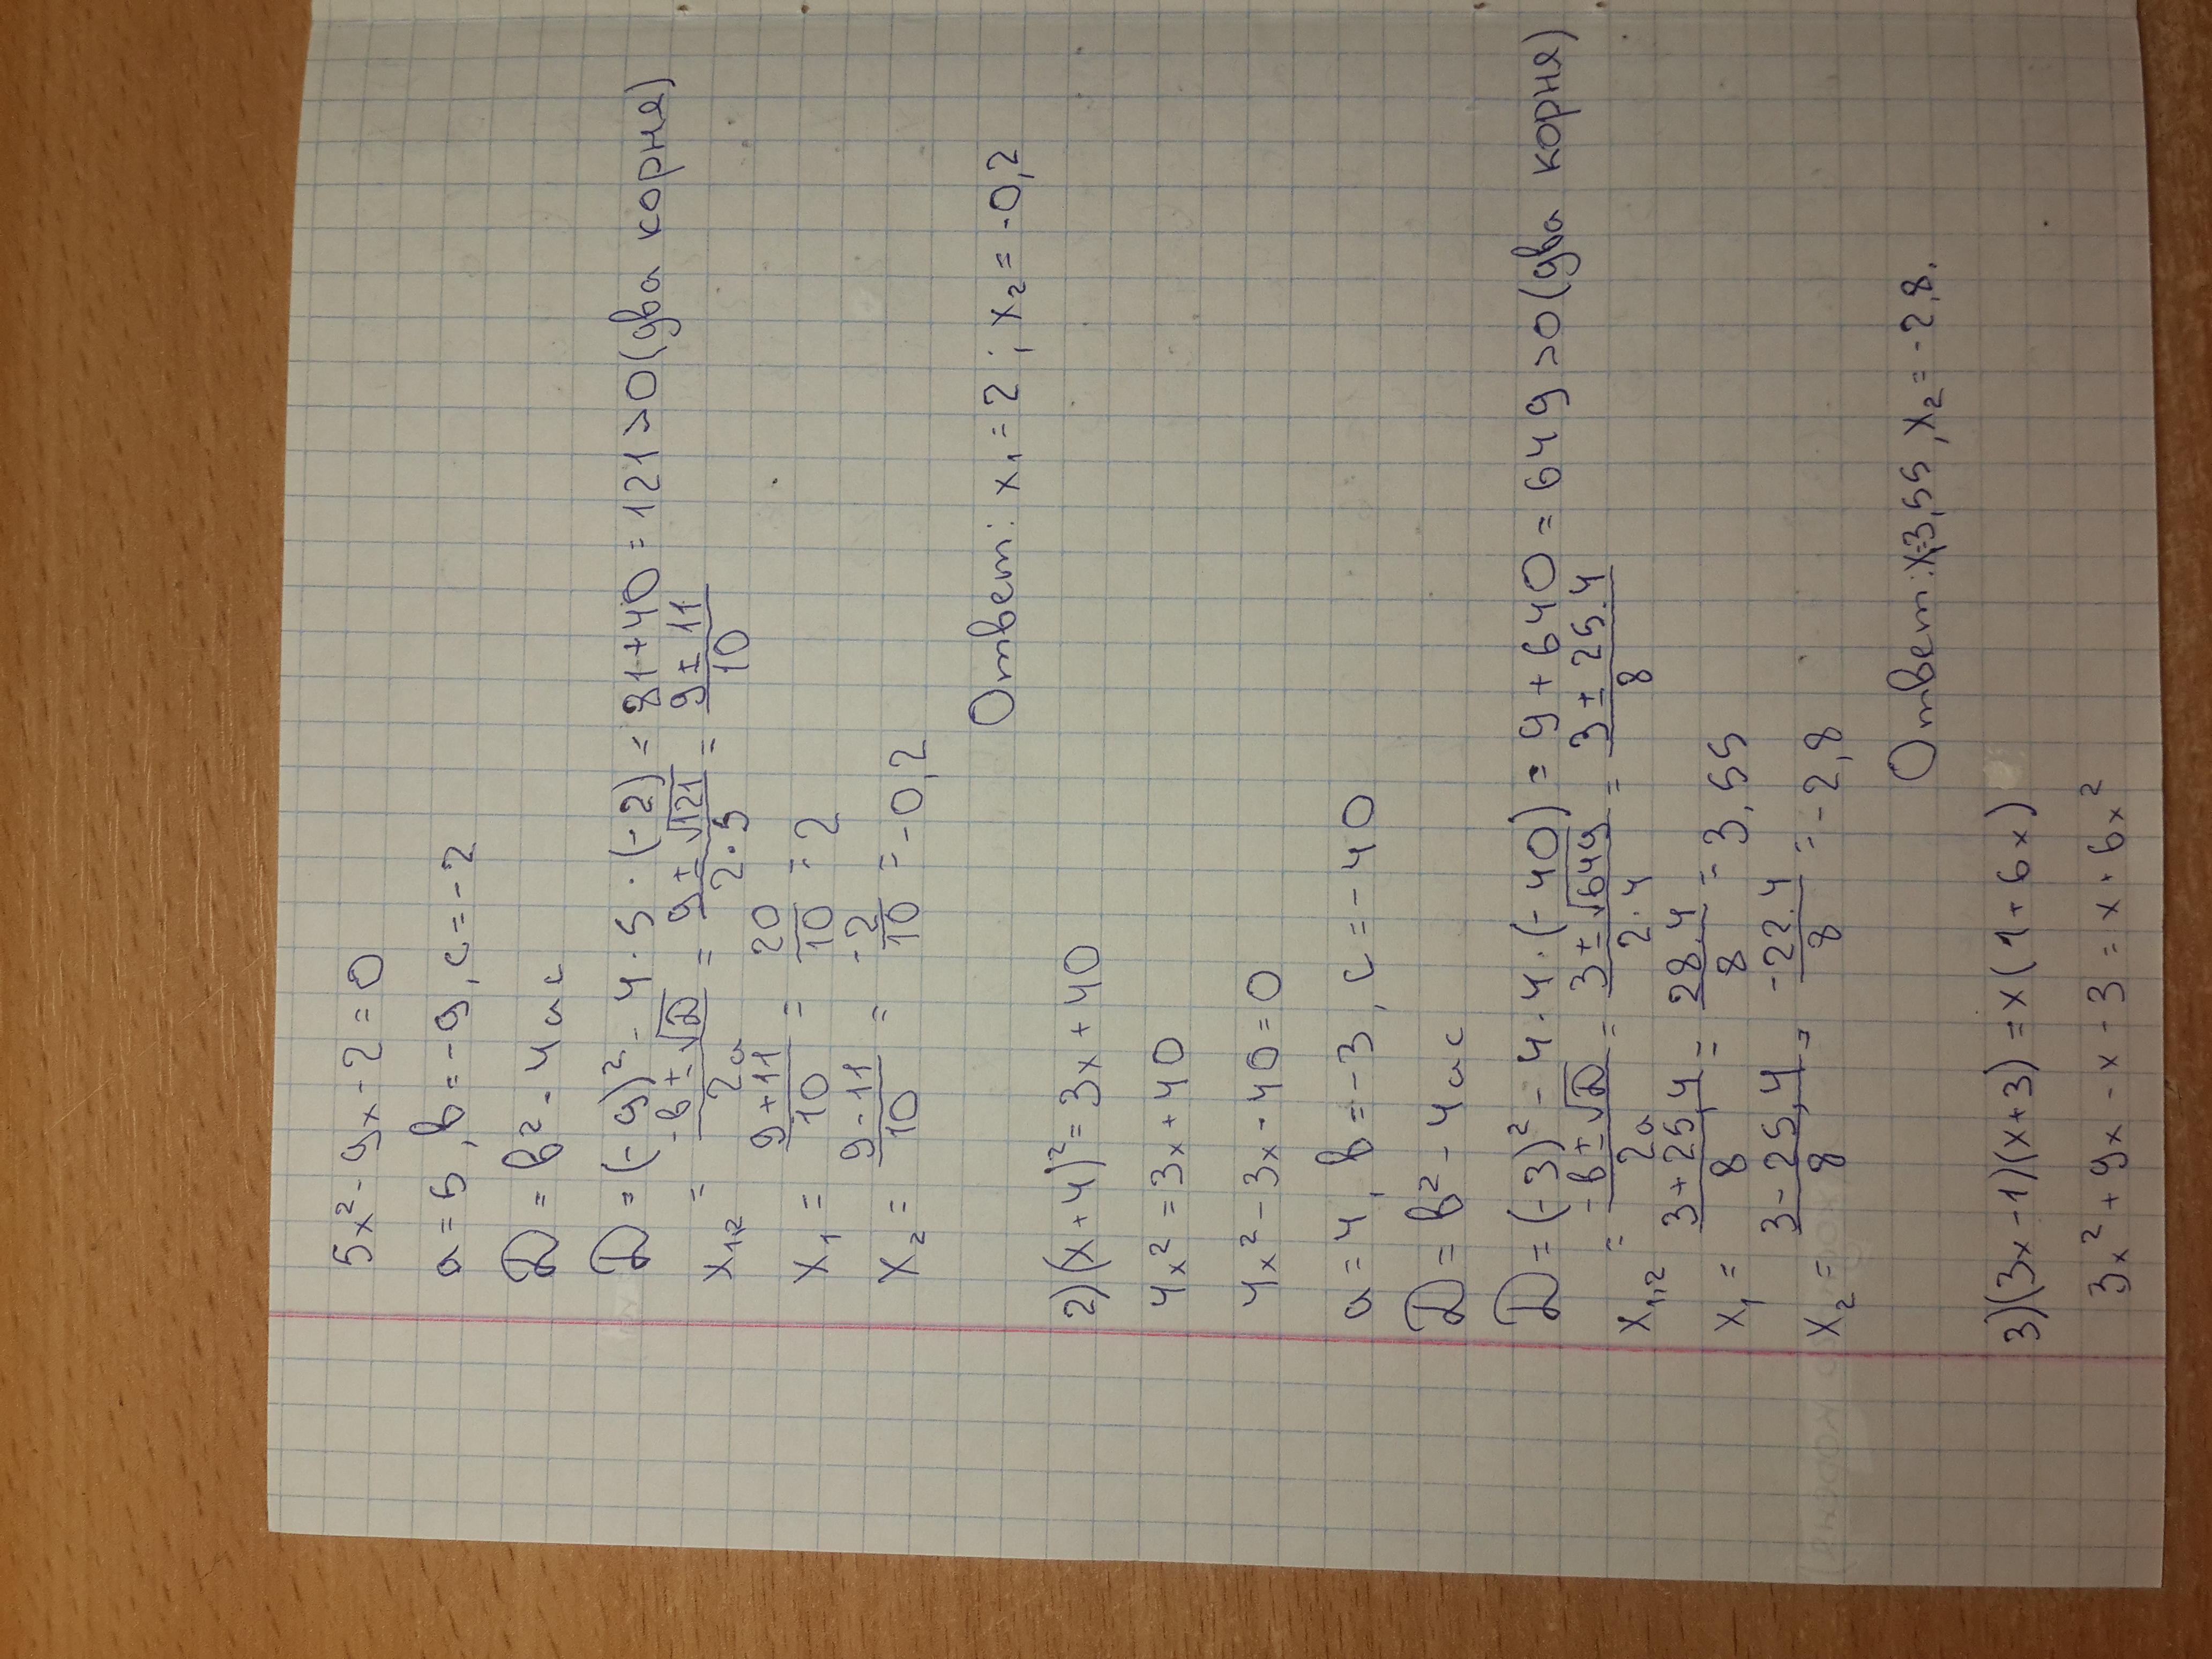 5x² - 9x - 2 = 0
a = 5, b = -9, c = -2
D = b² - 4ac
D = (-9)² - 4 · 5 · (-2) = 81 + 40 = 121 > 0 (два корня)
x₁,₂ = (-b ± √D) / 2a = (9 ± √121) / 2·5 = (9 ± 11) / 10
x₁ = (9 + 11) / 10 = 20 / 10 = 2
x₂ = (9 - 11) / 10 = -2 / 10 = -0,2
Ответ: x₁ = 2; x₂ = -0,2
2) (x + 4)² = 3x + 40
4x² = 3x + 40
4x² - 3x - 40 = 0
a = 4, b = -3, c = -40
D = b² - 4ac
D = (-3)² - 4 · 4 · (-40) = 9 + 640 = 649 > 0 (два корня)
x₁,₂ = (-b ± √D) / 2a = (3 ± √649) / 2·4 = (3 ± 25.4) / 8
x₁ = (3 + 25,4) / 8 = 28.4 / 8 = 3,55
x₂ = (3 - 25,4) / 8 = -22.4 / 8 = -2,8
Ответ: x=3,55, x₂ = -2,8.
3) (3x - 1)(x + 3) = x(1 + 6x)
3x² + 9x - x - 3 = x · 6x²